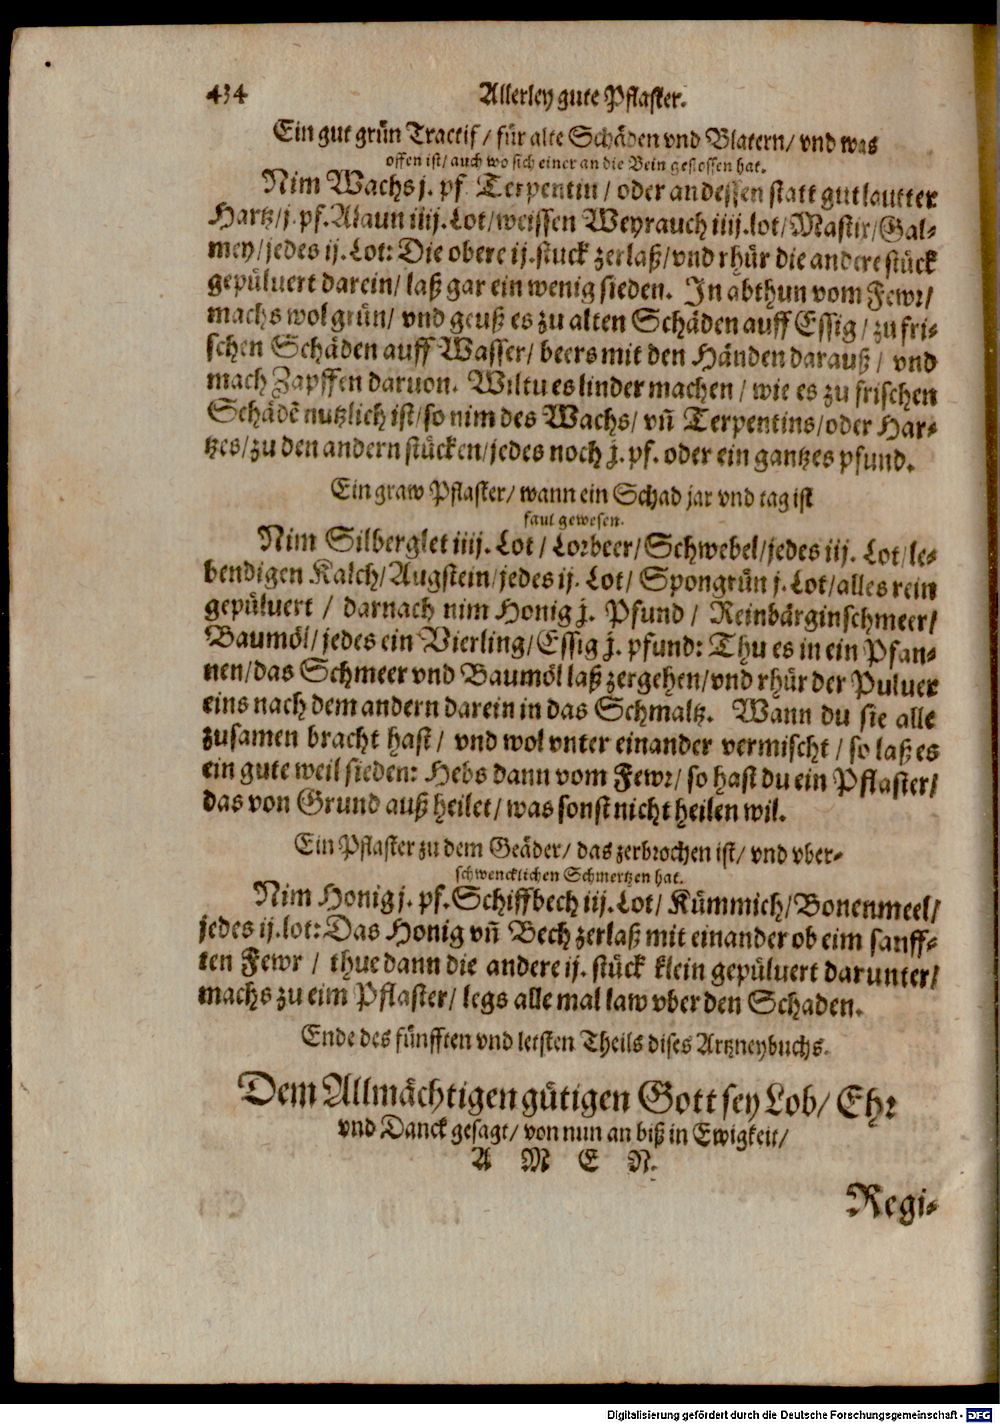 434 Allerley gute Pflaster.
Ein gut grün Tractif / für alte Schäden vnd Blatern / vnd was
offen ist / auch wo sich einer an die Bein gestossen hat.
Nim Wachs j. pf. Terpentin / oder an dessen statt gut lautter
Hartz / j. pf. Alaun iiij. Lot / weissen Weyrauch iiij. lot / Mastix / Gal-
mey / jedes ij. Lot: Die obere ij. stuck zerlaß / vnd rhür die andere stück
gepüluert darein / laß gar ein wenig sieden. In abthun vom Fewr /
machs wol grün / vnd geuß es zu alten Schäden auff Essig / zu fri-
schen Schäden auff Wasser / beers mit den Händen darauß / vnd
mach Zapffen daruon. Wiltu es linder machen / wie es zu frischen
Schädē nutzlich ist / so nim des Wachs / vñ Terpentins / oder Har-
tzes / zu den andern stücken / jedes noch j. pf. oder ein gantzes pfund.
Ein graw Pflaster / wann ein Schad jar vnd tag ist
faul gewesen.
Nim Silberglet iiij. Lot / Lorbeer / Schwebel / jedes iij. Lot / le-
bendigen Kalch / Augstein / jedes ij. Lot / Spongrün j. Lot / alles rein
gepüluert / darnach nim Honig j. Pfund / Reinbärginschmeer /
Baumöl / jedes ein Vierling / Essig j. pfund: Thu es in ein Pfan-
nen / das Schmeer vnd Baumöl laß zergehen / vnd rhür der Puluer
eins nach dem andern darein in das Schmaltz. Wann du sie alle
zusamen bracht hast / vnd wol vnter einander vermischt / so laß es
ein gute weil sieden: Hebs dann vom Fewr / so hast du ein Pflaster /
das von Grund auß heilet / was sonst nicht heilen wil.
Ein Pflaster zu dem Geäder / das zerbrochen ist / vnd vber-
schwencklichen Schmertzen hat.
Nim Honig j. pf. Schiffbech iij. Lot / Kümmich / Bonenmeel /
jedes ij. lot: Das Honig vñ Bech zerlaß mit einander ob eim sanff-
ten Fewr / thue dann die andere ij. stück klein gepüluert darunter /
machs zu eim Pflaster / legs alle mal law vber den Schaden.
Ende des fünfften vnd letsten Theils dises Artzneybuchs.
Dem Allmächtigen gütigen Gott sey Lob / Ehr
vnd Danck gesagt / von nun an biß in Ewigkeit /
A M E N.
Regi-
Digitalisierung gefördert durch die Deutsche Forschungsgemeinschaft - DFG